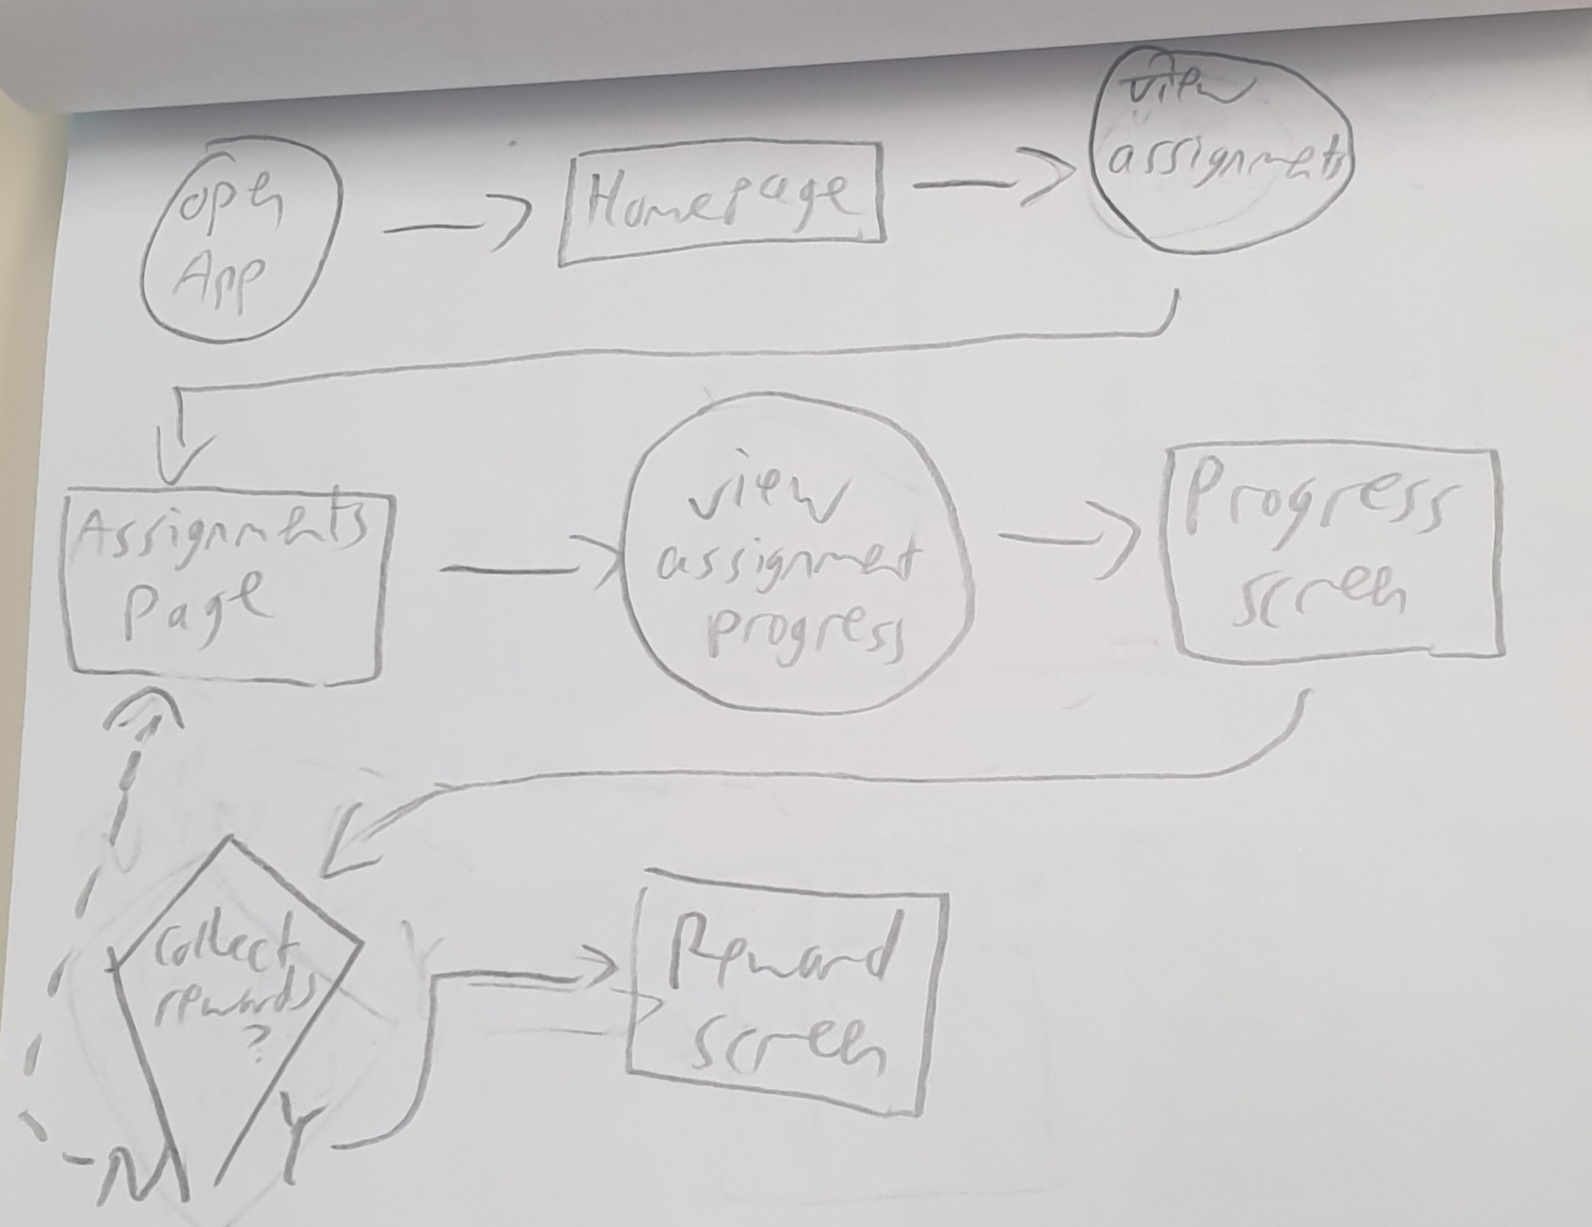 open
App
Homepage
view
assignments
Assignments
Page
view
assignment
progress
Progress
screen
collect
rewards
?
Y
Reward
screen
N
Y